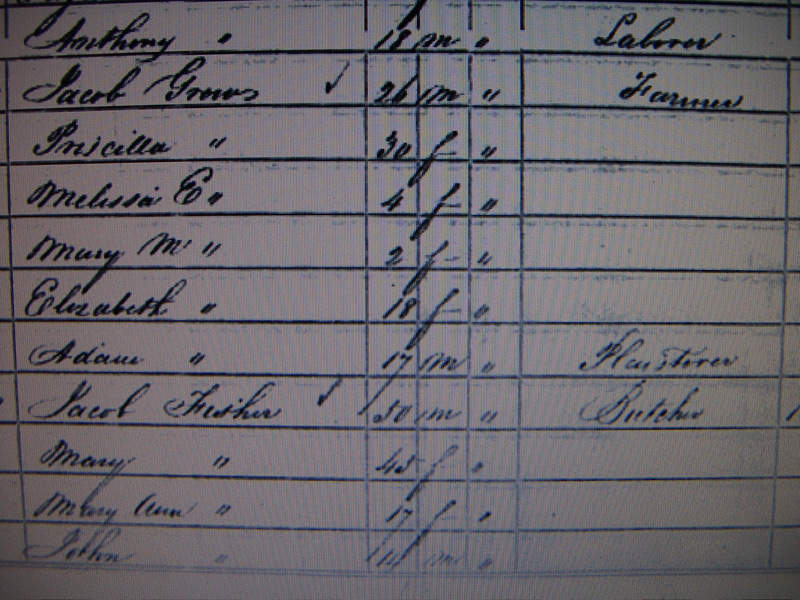 Anthony " 18 m " Laborer
Jacob Groves 26 m " Farmer
Priscilla " 30 f "
Melissa E " 4 f "
Mary M " 2 f "
Elizabeth " 18 f "
Adam " 17 m " Plasterer
Jacob Fisher 50 m " Butcher
Mary " 45 f "
Mary Ann " 17 f "
John " m "